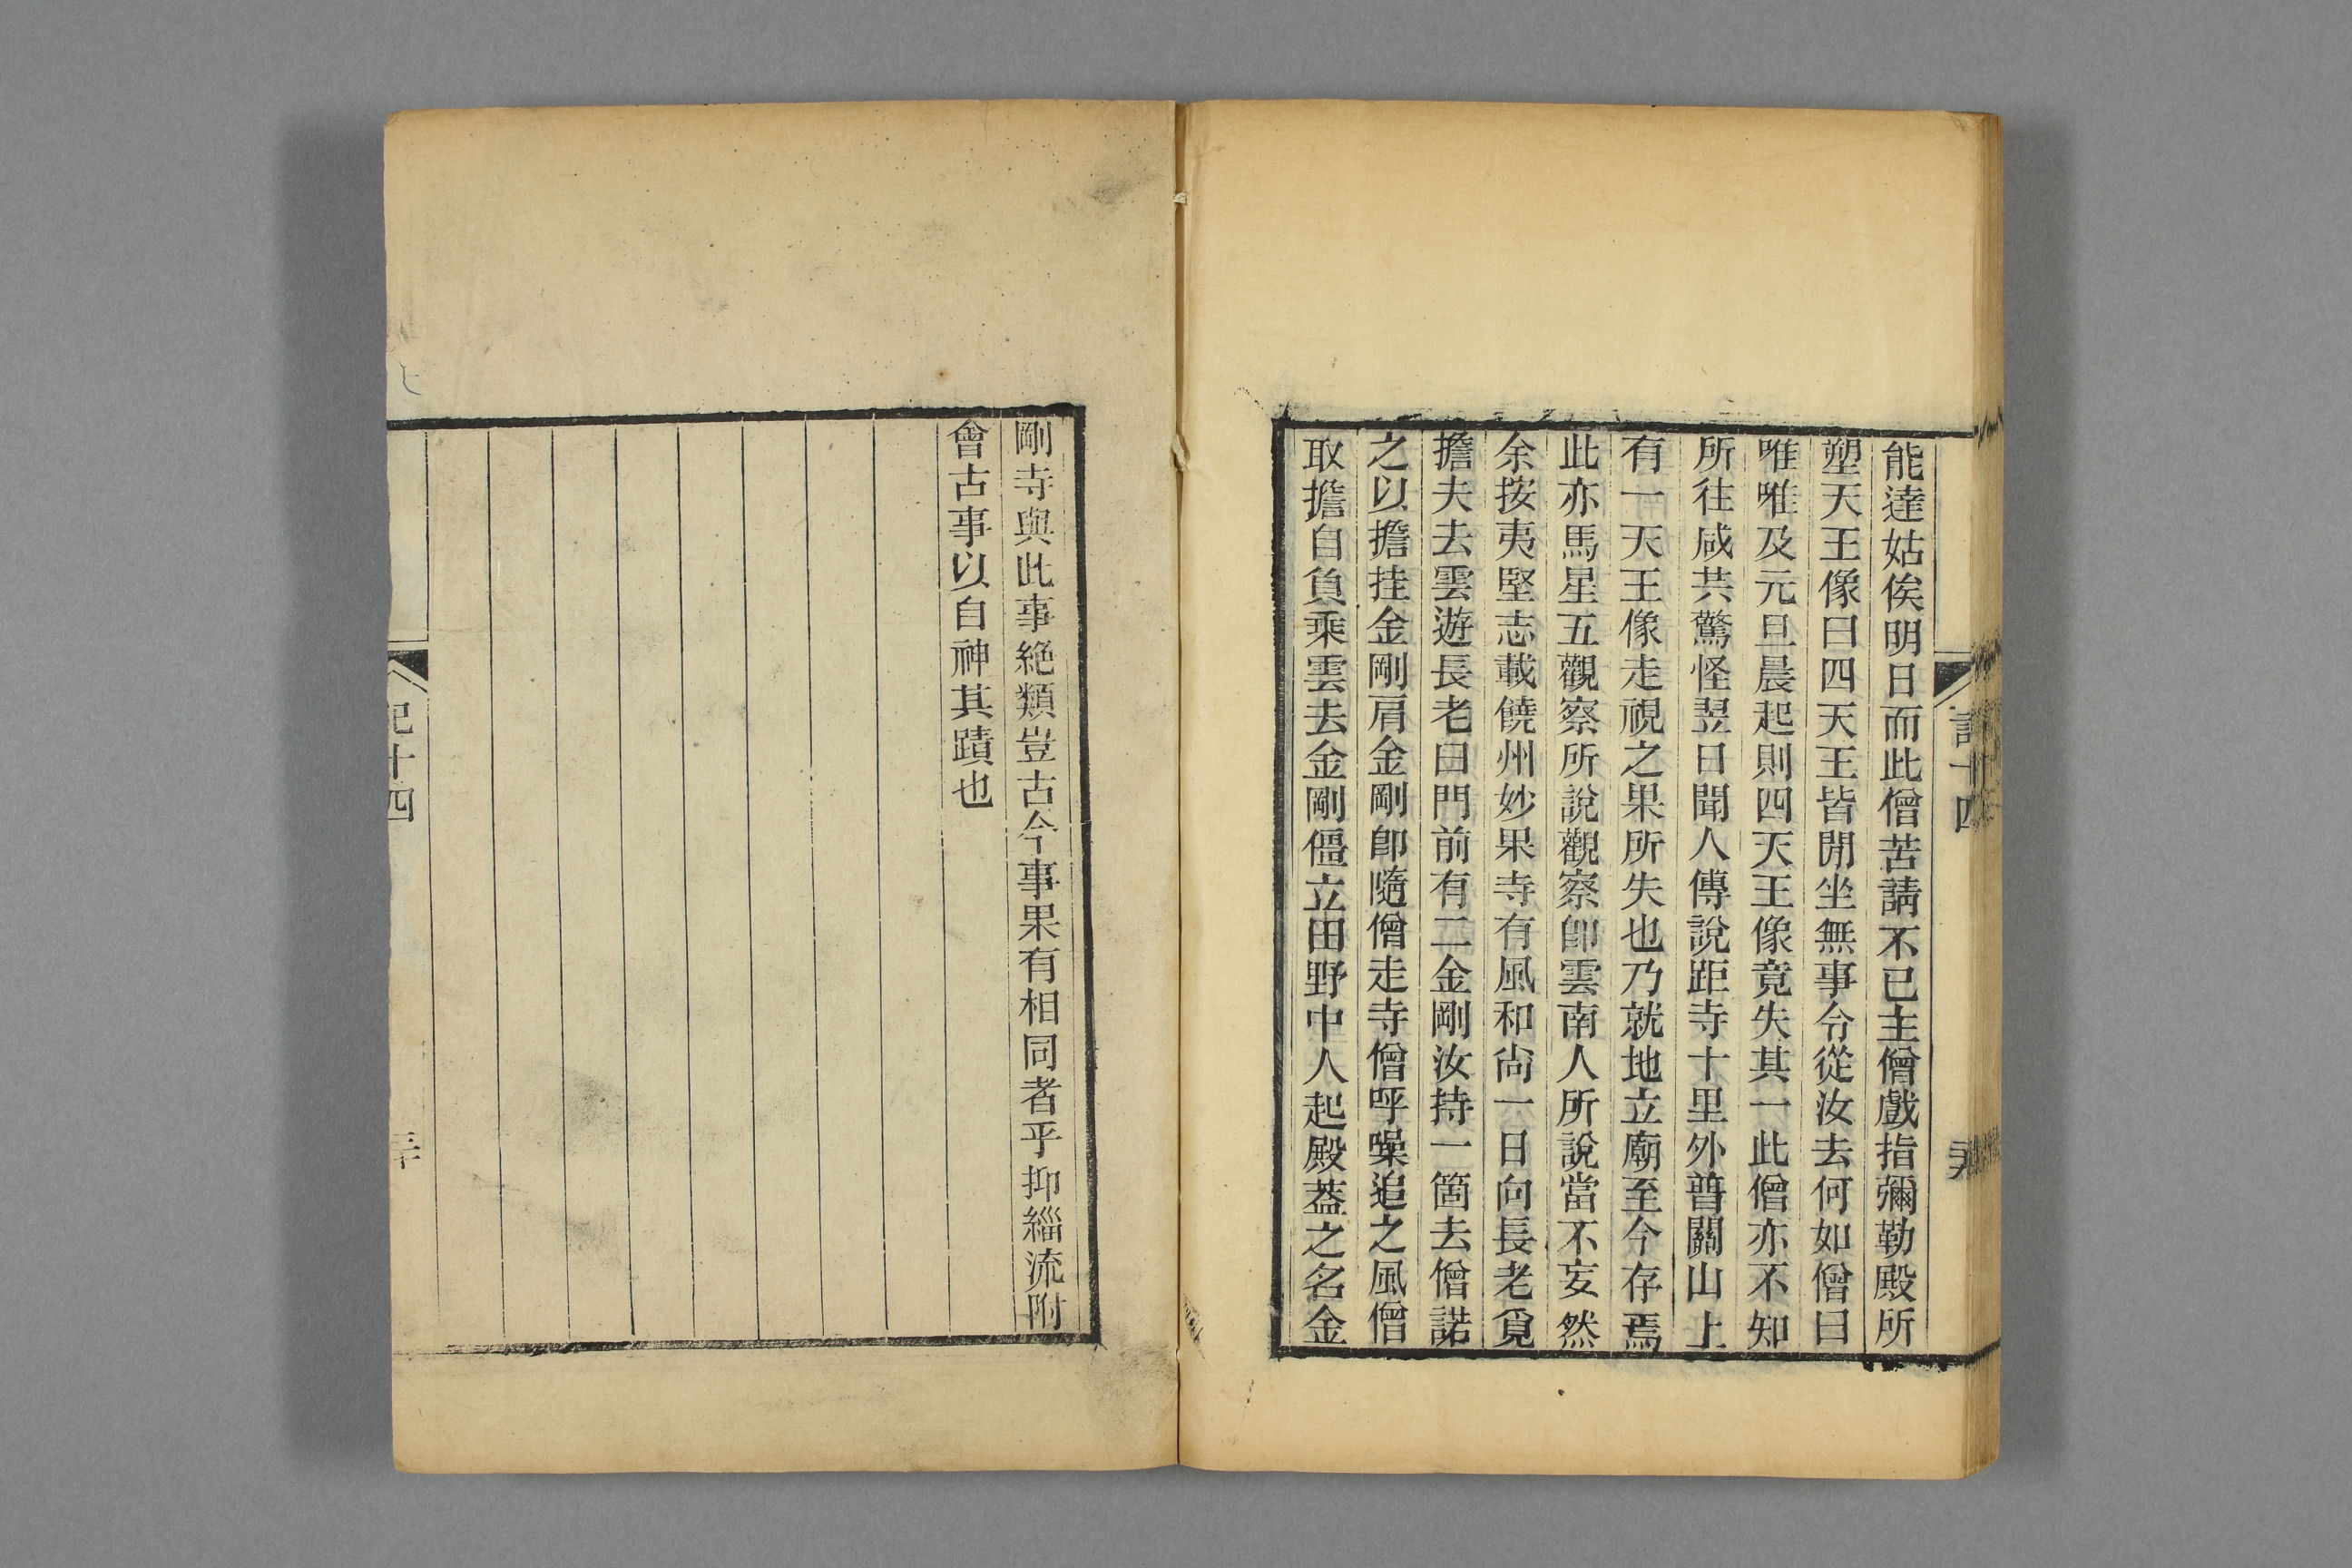 能達姑俟明日而此僧苦請不已主僧戲指彌勒殿所
塑天王像曰四天王皆閒坐無事令從汝去何如僧曰
唯唯及元旦晨起則四天王像竟失其一此僧亦不知
所往咸共驚怪翌日聞人傳說距寺十里外普關山上
有一天王像走視之果所失也乃就地立廟至今存焉
此亦馬星五觀察所說觀察卽雲南人所說當不妄然
余按夷堅志載饒州妙果寺有風和尙一日向長老覓
擔夫去雲遊長老曰門前有二金剛汝持一箇去僧諾
之以擔挂金剛肩金剛卽隨僧走寺僧呼噪追之風僧
取擔自負乘雲去金剛僵立田野中人起殿葢之名金
剛寺與此事絶類豈古今事果有相同者乎抑緇流附
會古事以自神其蹟也
記十四
三十